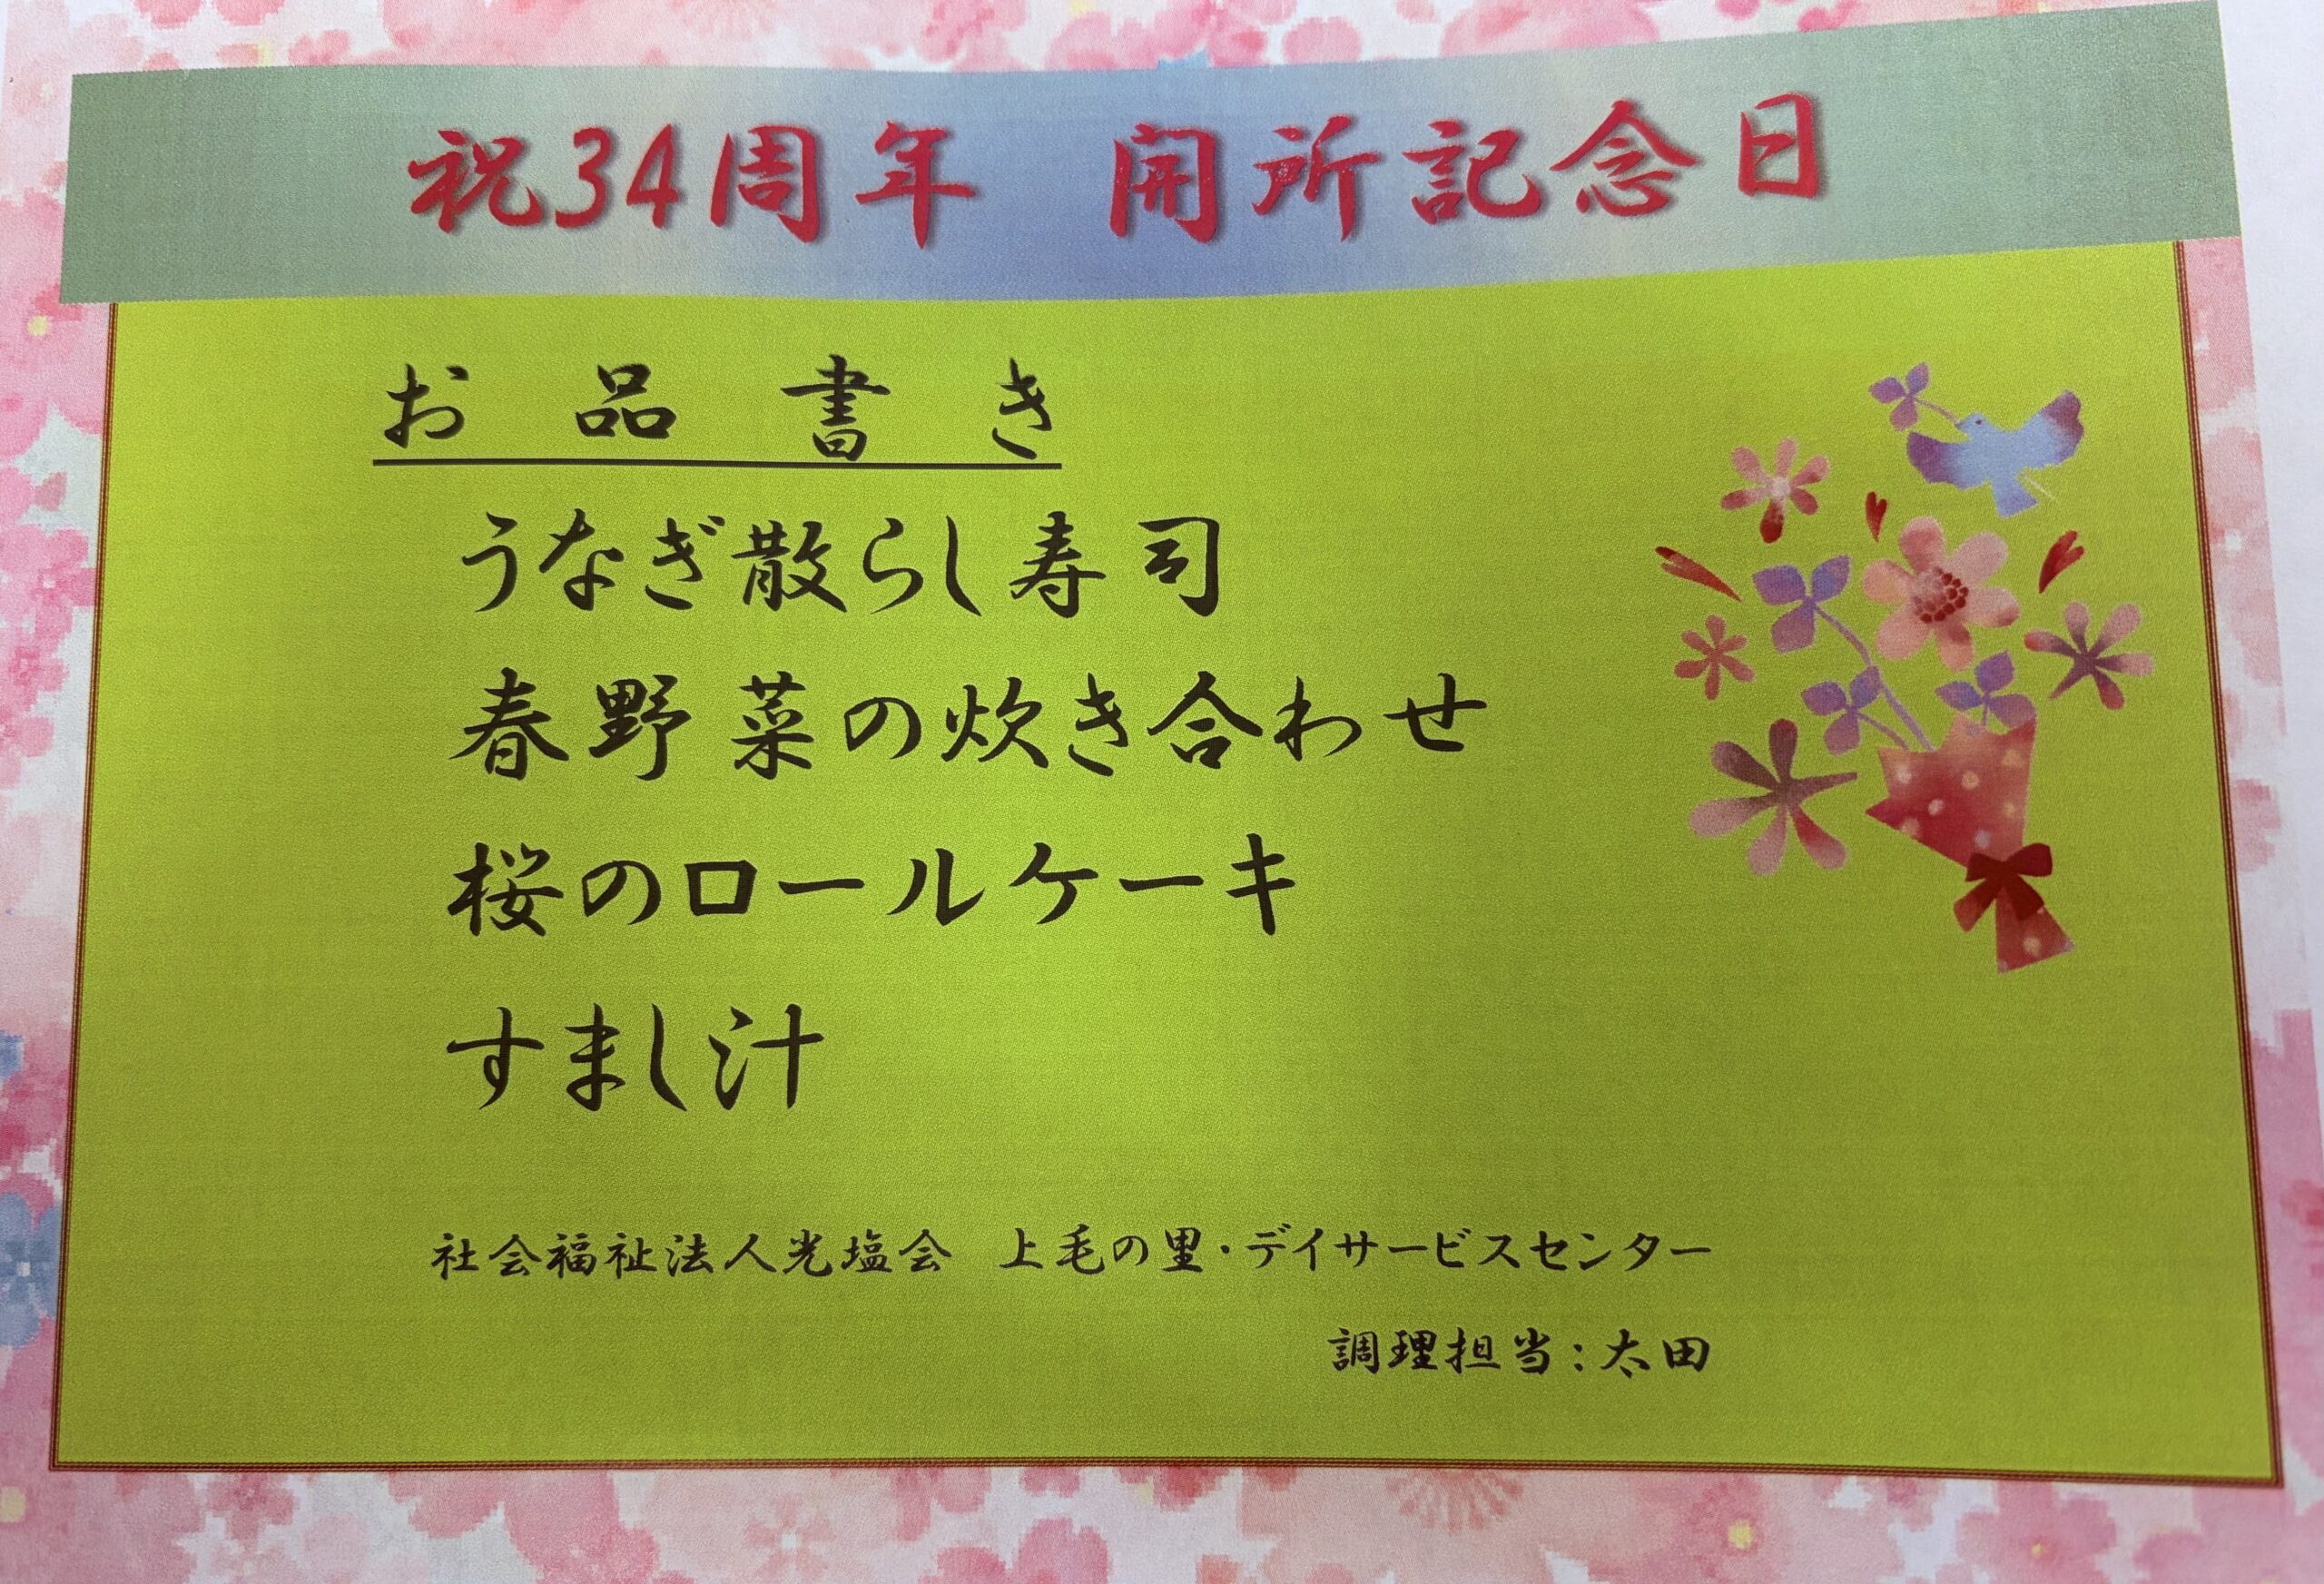 祝34周年　開所記念日
お品書き
うなぎ散らし寿司
春野菜の炊き合わせ
桜のロールケーキ
すまし汁
社会福祉法人光塩会　上毛の里・デイサービスセンター
調理担当：太田